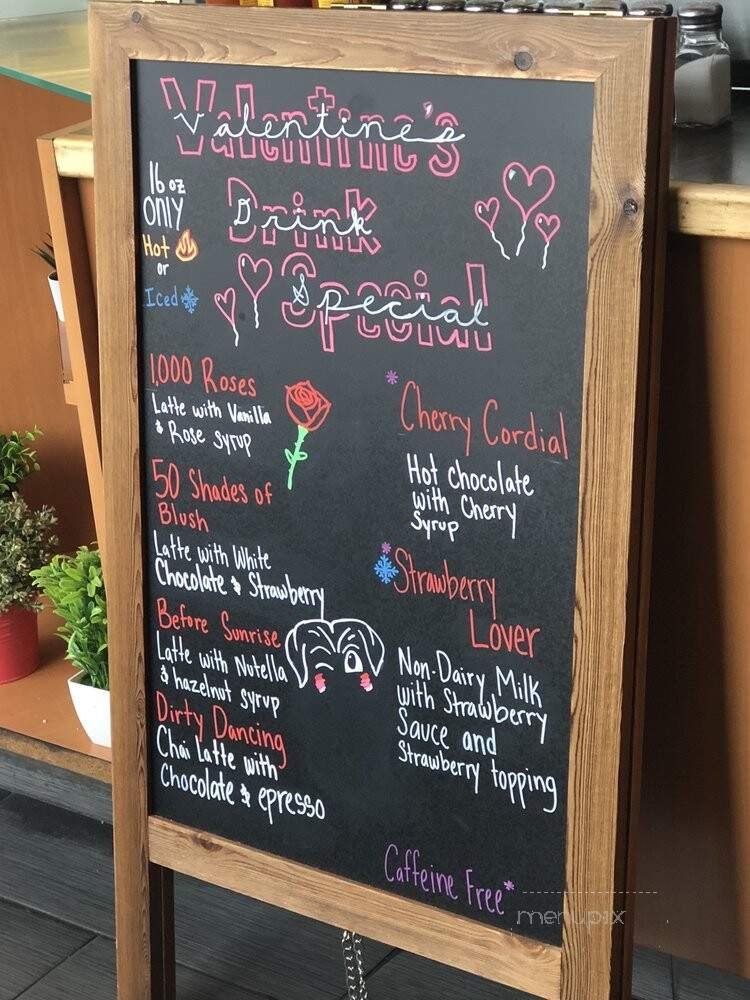 Valentine's
Drink
Special
16 oz
ONLY
Hot
or
Iced
1,000 Roses
Latte with Vanilla
& Rose syrup
50 Shades of
Blush
Latte with White
Chocolate & Strawberry
Before Sunrise
Latte with Nutella
& hazelnut syrup
Dirty Dancing
Chai Latte with
Chocolate & epresso
*
Cherry Cordial
Hot chocolate
with Cherry
Syrup
*
Strawberry
Lover
Non-Dairy Milk
with Strawberry
Sauce and
Strawberry topping
Caffeine Free*
menupix